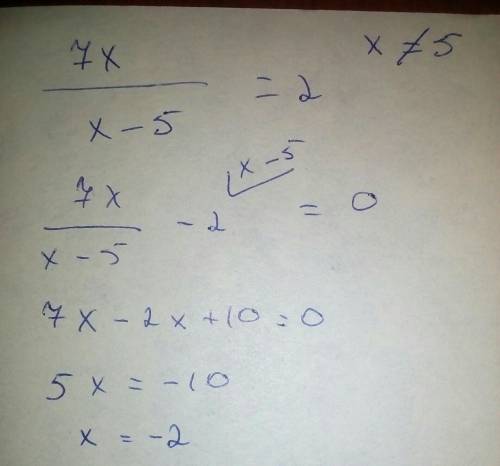 7x / x - 5 = 2   x ≠ 5
7x / x - 5 - 2 x - 5 = 0
7x - 2x + 10 = 0
5x = -10
x = -2